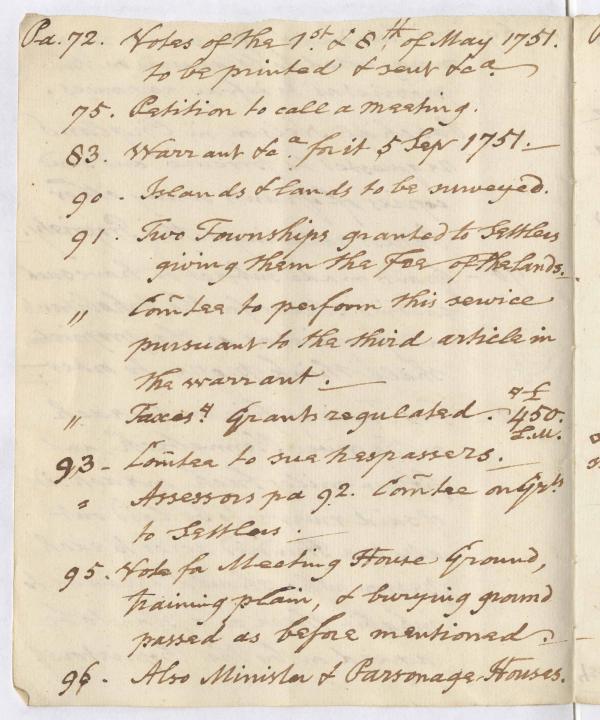 Pa. 72. Votes of the 1st. & 8th of May 1751.
to be printed & sent &ca.
75. Petition to call a meeting.
83. Warrant &ca. for it 5 Sep 1751.—
90. Islands & lands to be surveyed.
91. Two Townships granted to Settlers
giving them the Fee of the lands.
" Com̃tee to perform this service
pursuant to the third article in
the warrant.—
" Taxes & Grants regulated. £
450.
L.M.
93- Com̃tee to sue trespassers.—
" Assessors pa 92. Com̃tee on Grts
to Settlers.—
95. Vote for Meeting House Ground,
training plain, & burying ground
passed as before mentioned.
96. Also Minister & Parsonage Houses.